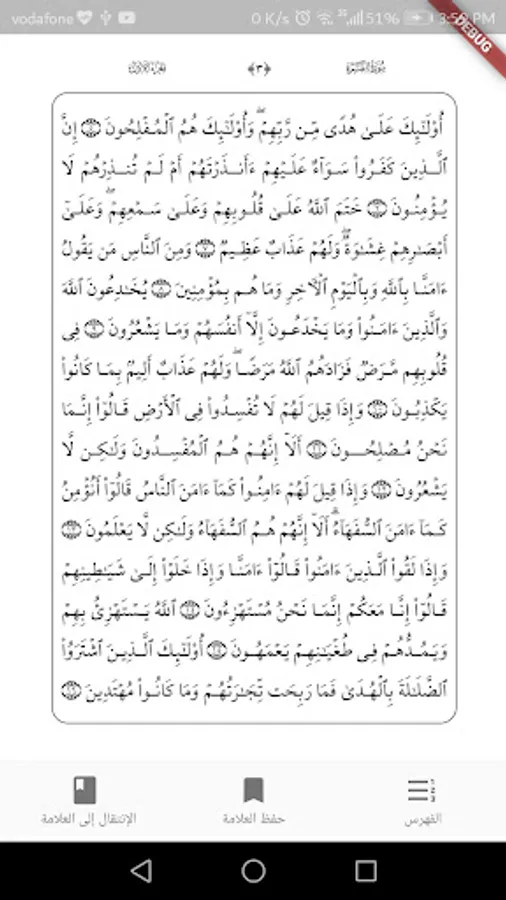 vodafone 0 K/s 3G 51% 3:59 PM
DEBUG
سورة البقرة ﴿٣﴾ الجزء الأول
أُوْلَـٰٓئِكَ عَلَىٰ هُدًى مِّن رَّبِّهِمْ ۖ وَأُوْلَـٰٓئِكَ هُمُ ٱلْمُفْلِحُونَ ۝ إِنَّ
ٱلَّذِينَ كَفَرُوا۟ سَوَآءٌ عَلَيْهِمْ ءَأَنذَرْتَهُمْ أَمْ لَمْ تُنذِرْهُمْ لَا
يُؤْمِنُونَ ۝ خَتَمَ ٱللَّهُ عَلَىٰ قُلُوبِهِمْ وَعَلَىٰ سَمْعِهِمْ ۖ وَعَلَىٰٓ
أَبْصَـٰرِهِمْ غِشَـٰوَةٌ ۖ وَلَهُمْ عَذَابٌ عَظِيمٌ ۝ وَمِنَ ٱلنَّاسِ مَن يَقُولُ
ءَامَنَّا بِٱللَّهِ وَبِٱلْيَوْمِ ٱلْـَٔاخِرِ وَمَا هُم بِمُؤْمِنِينَ ۝ يُخَـٰدِعُونَ ٱللَّهَ
وَٱلَّذِينَ ءَامَنُوا۟ وَمَا يَخْدَعُونَ إِلَّآ أَنفُسَهُمْ وَمَا يَشْعُرُونَ ۝ فِى
قُلُوبِهِم مَّرَضٌ فَزَادَهُمُ ٱللَّهُ مَرَضًا ۖ وَلَهُمْ عَذَابٌ أَلِيمٌۢ بِمَا كَانُوا۟
يَكْذِبُونَ ۝ وَإِذَا قِيلَ لَهُمْ لَا تُفْسِدُوا۟ فِى ٱلْأَرْضِ قَالُوٓا۟ إِنَّمَا
نَحْنُ مُصْلِحُونَ ۝ أَلَآ إِنَّهُمْ هُمُ ٱلْمُفْسِدُونَ وَلَـٰكِن لَّا
يَشْعُرُونَ ۝ وَإِذَا قِيلَ لَهُمْ ءَامِنُوا۟ كَمَآ ءَامَنَ ٱلنَّاسُ قَالُوٓا۟ أَنُؤْمِنُ
كَمَآ ءَامَنَ ٱلسُّفَهَآءُ ۗ أَلَآ إِنَّهُمْ هُمُ ٱلسُّفَهَآءُ وَلَـٰكِن لَّا يَعْلَمُونَ ۝
وَإِذَا لَقُوا۟ ٱلَّذِينَ ءَامَنُوا۟ قَالُوٓا۟ ءَامَنَّا وَإِذَا خَلَوْا۟ إِلَىٰ شَيَـٰطِينِهِمْ
قَالُوٓا۟ إِنَّا مَعَكُمْ إِنَّمَا نَحْنُ مُسْتَهْزِءُونَ ۝ ٱللَّهُ يَسْتَهْزِئُ بِهِمْ
وَيَمُدُّهُمْ فِى طُغْيَـٰنِهِمْ يَعْمَهُونَ ۝ أُوْلَـٰٓئِكَ ٱلَّذِينَ ٱشْتَرَوُا۟
ٱلضَّلَـٰلَةَ بِٱلْهُدَىٰ فَمَا رَبِحَت تِّجَـٰرَتُهُمْ وَمَا كَانُوا۟ مُهْتَدِينَ ۝
الفهرس حفظ العلامة الإنتقال إلى العلامة